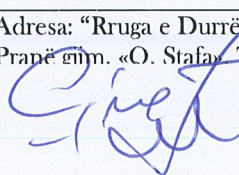 Adresa: “Rruga e Durrë
Pranë gjim. «Q. Stafa»